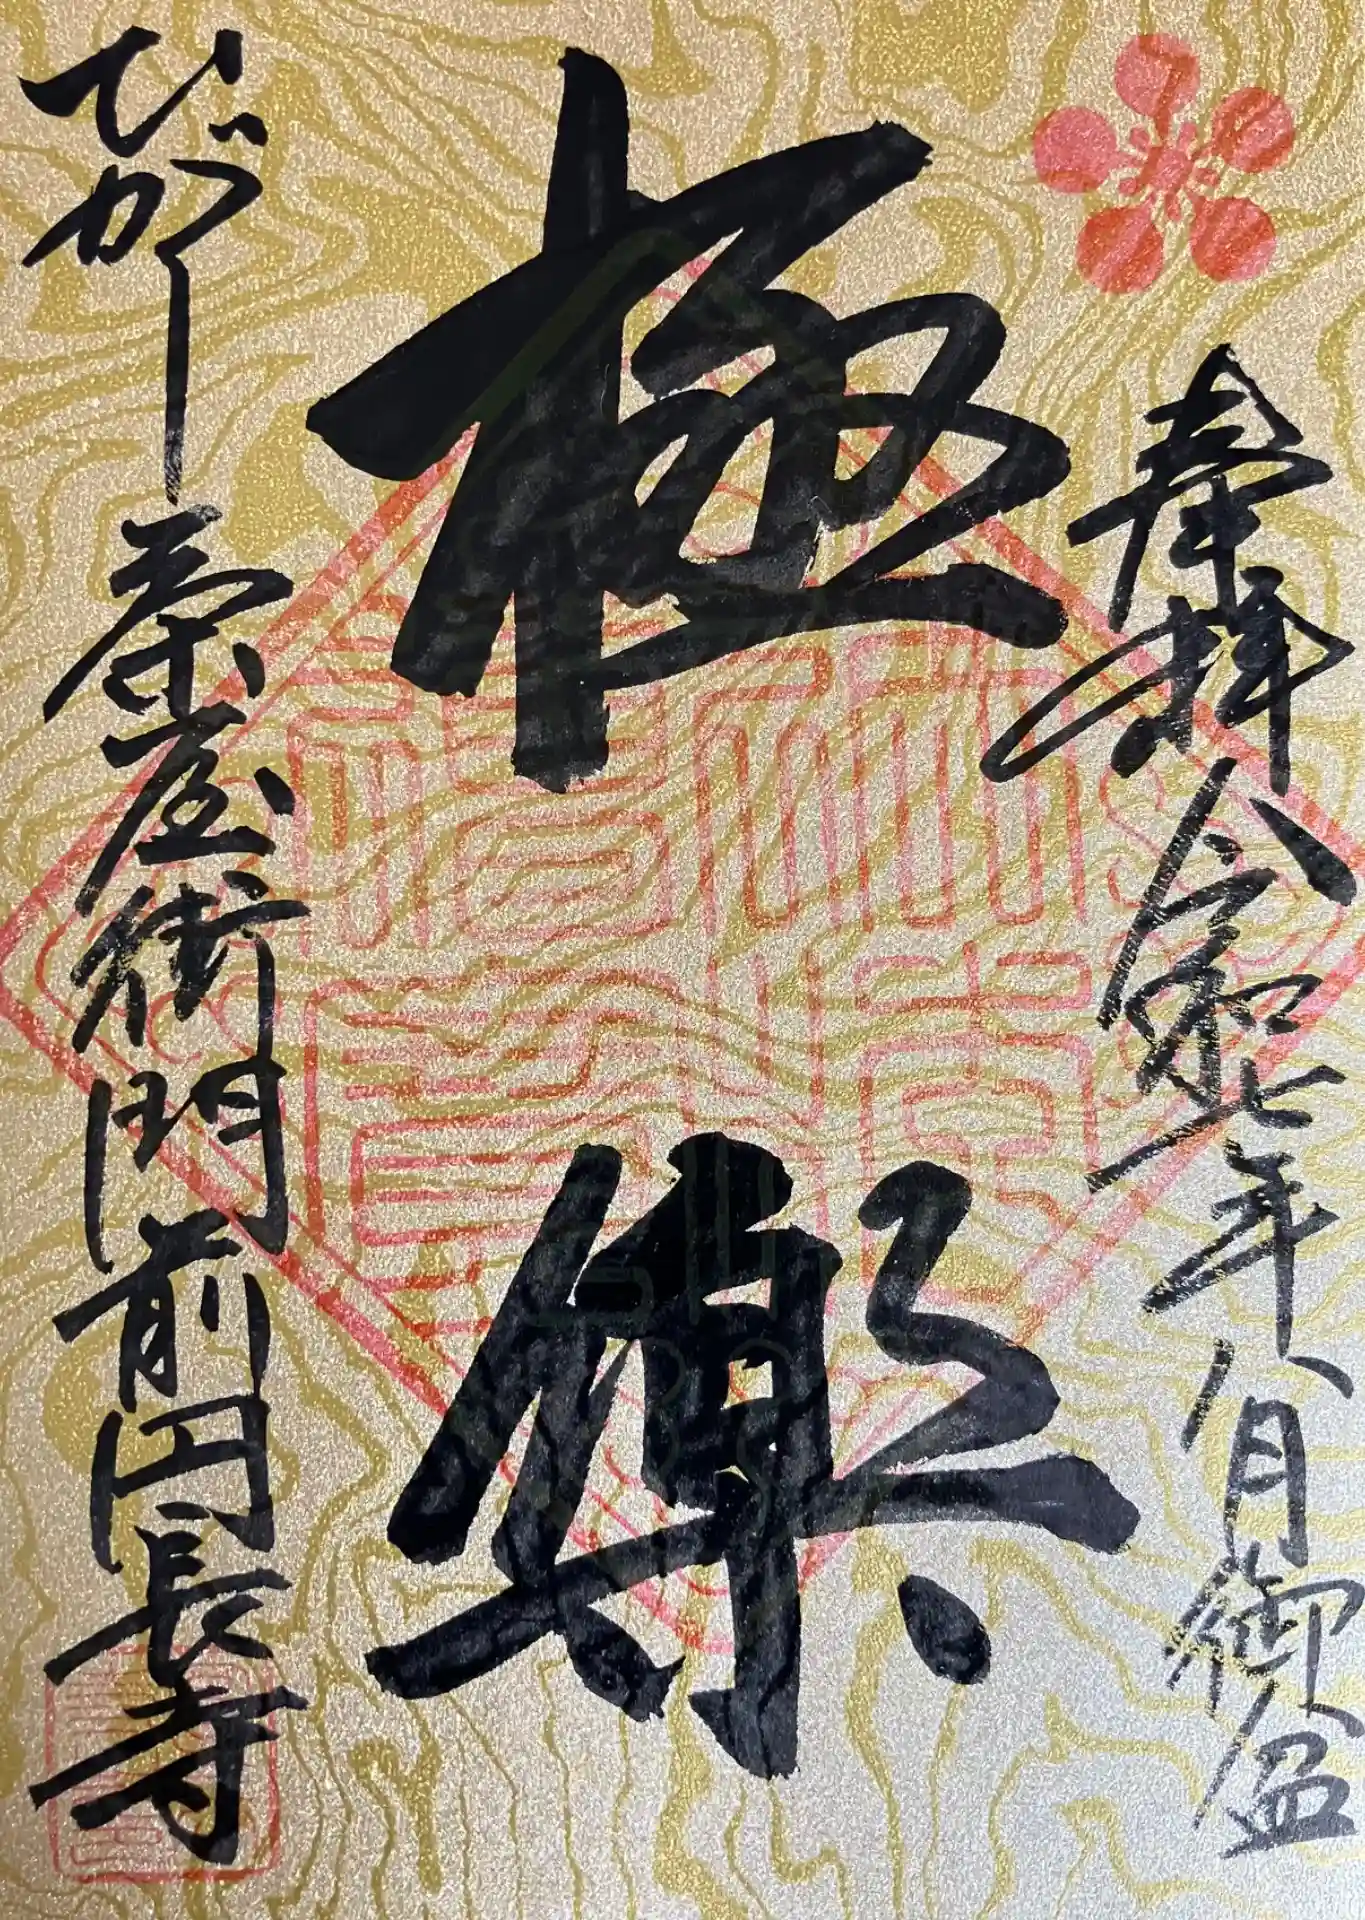 奉拝 令和七年八月御盆
極樂
ひがし茶屋街門前円長寺